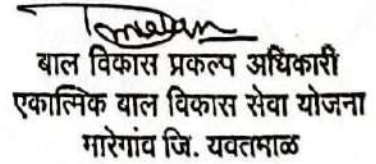 बाल विकास प्रकल्प अधिकारी
एकात्मिक बाल विकास सेवा योजना
मारेगांव जि. यवतमाळ